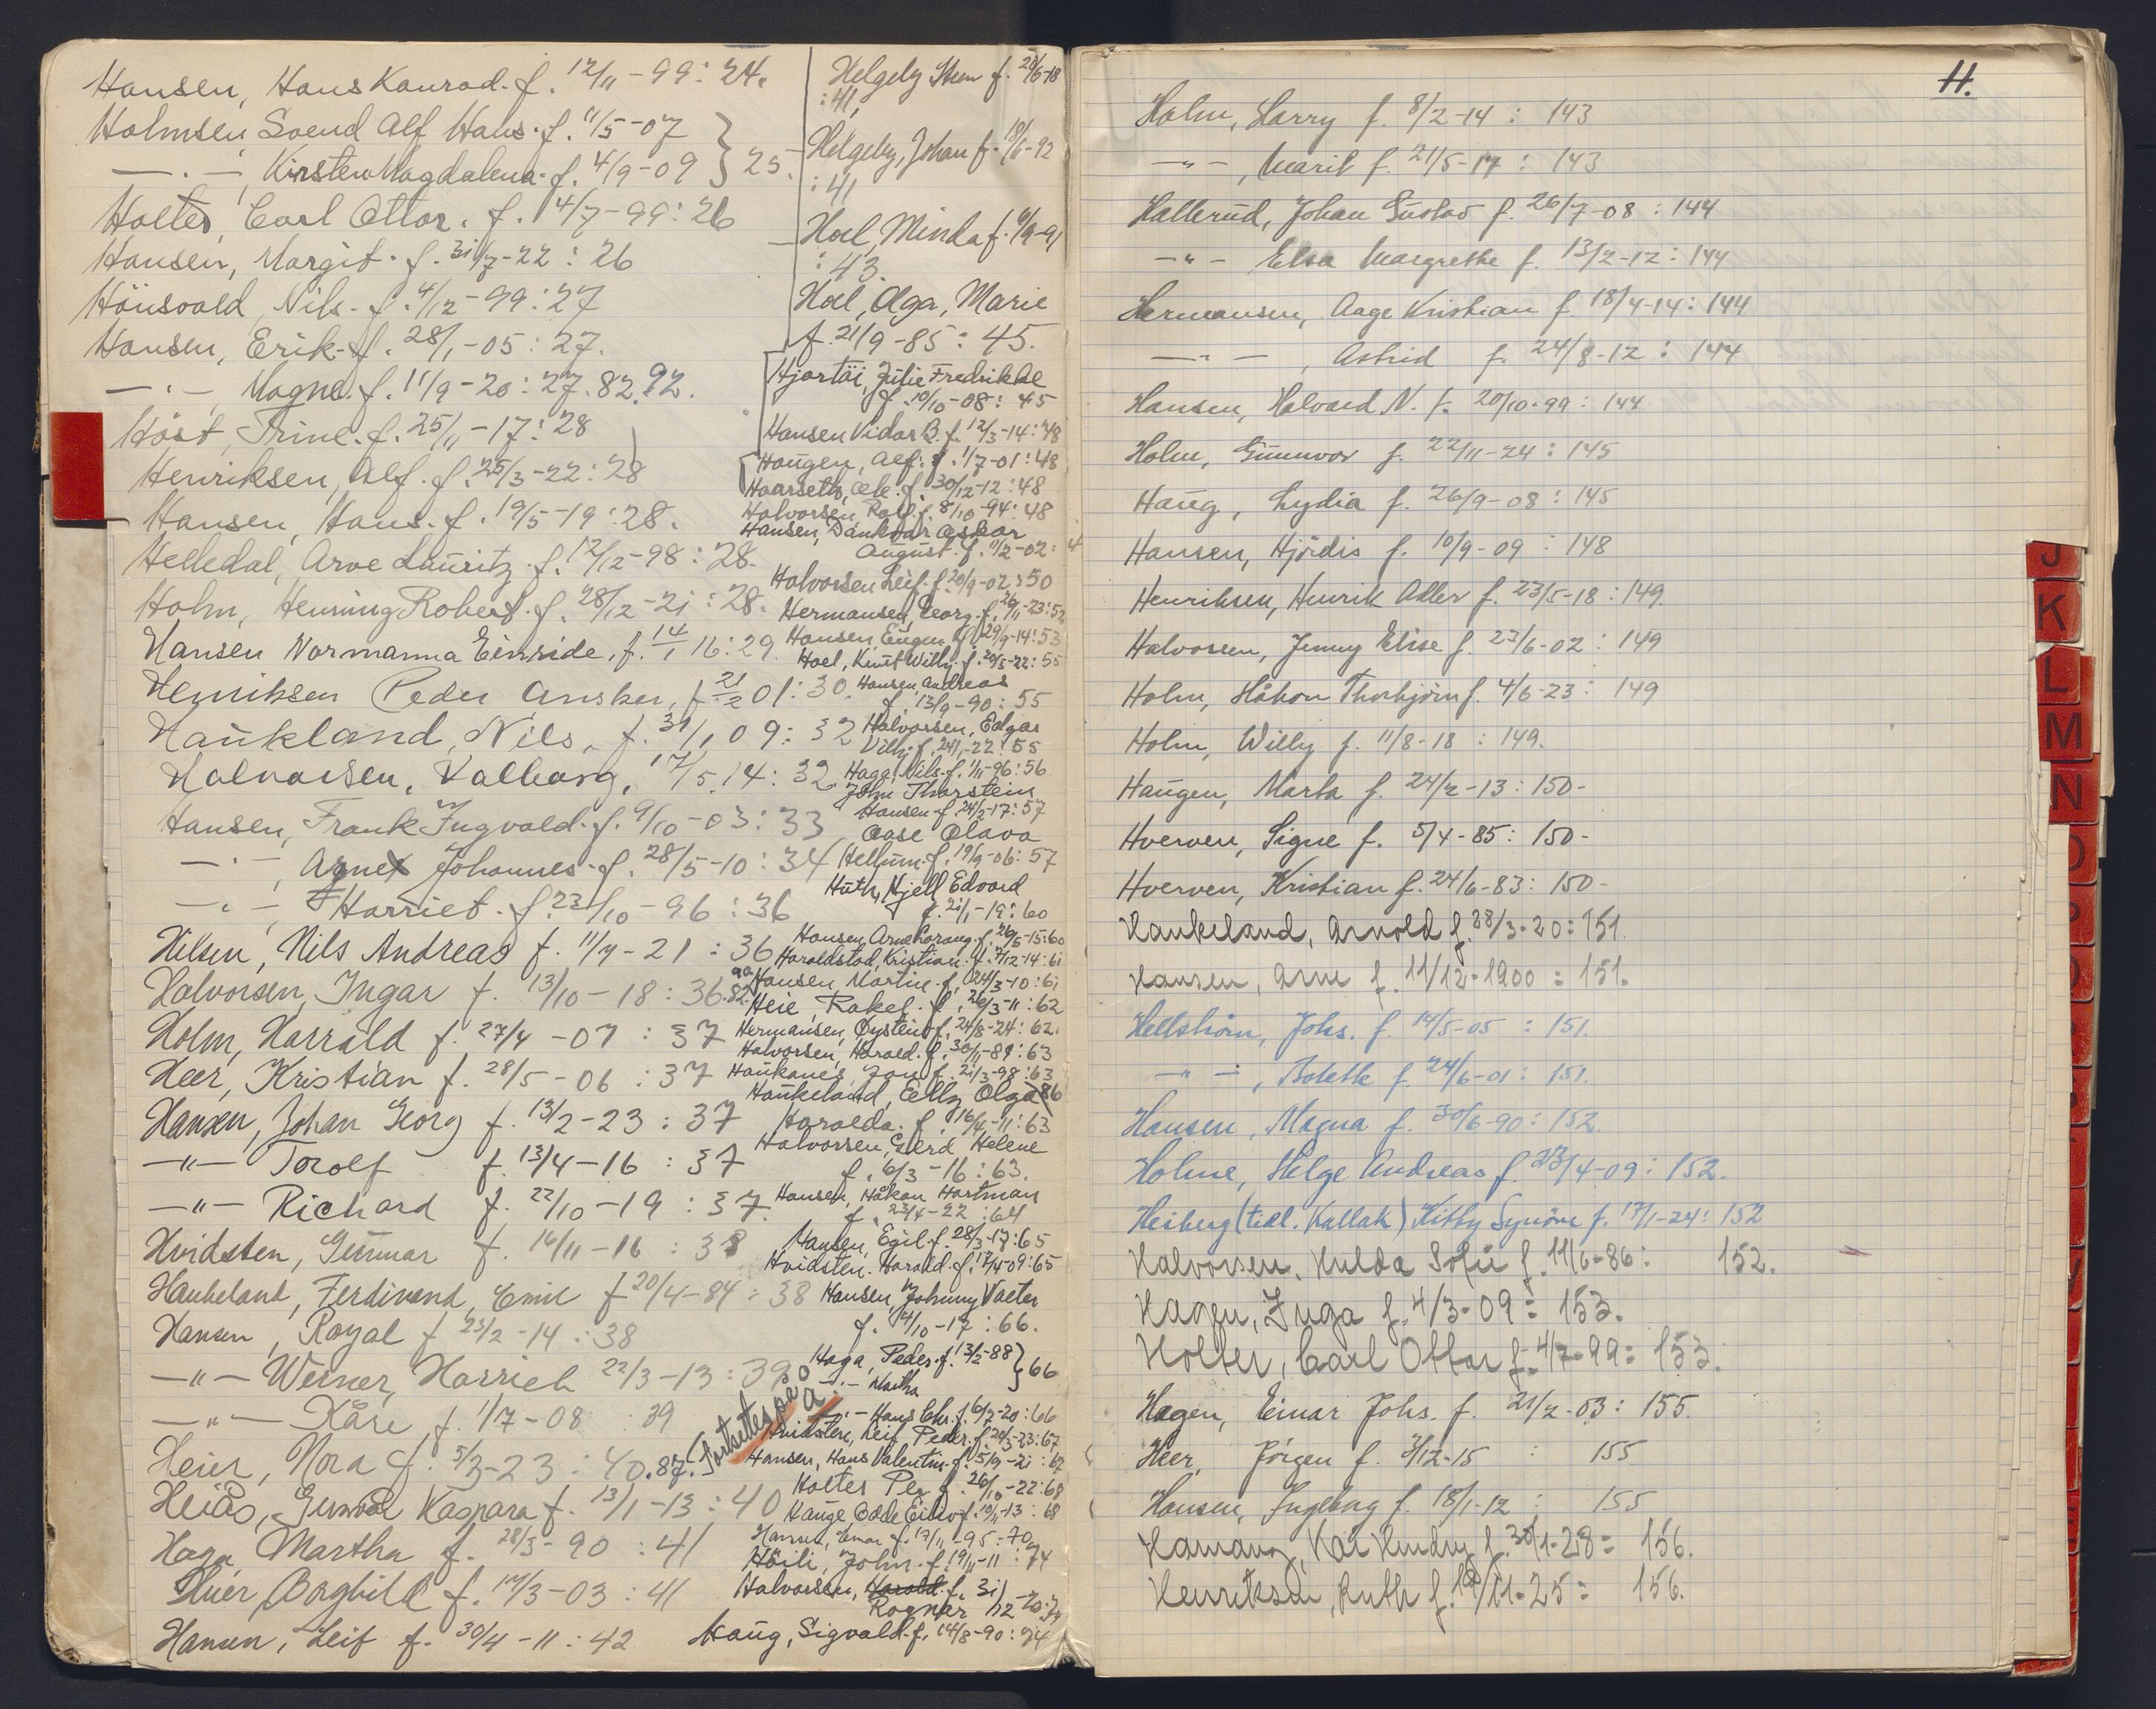 Hansen, Hans Konrad. f. 12/11-99: 24.
Holmsen Svend Alf Hans. f. 11/5-07
— . —, Kirsten Magdalena. f. 4/9-09 } 25.
Holter, Carl Ottar. f. 4/7-99: 26
Hansen, Margit. f. 31/7-22: 26
Hansen, Erik. f. 28/1-05: 27.
— . —, Magne. f. 11/9-20: 27. 82. 92.
Höst, Trine. f. 25/11-17: 28
Henriksen, Alf. f. 25/3-22: 28
Hansen, Hans. f. 19/5-19: 28.
Helledal, Arve Lauritz. f. 12/12-98: 28.
Holm, Henning Robert. f. 28/12-21: 28.
Hansen Normanna Einride, f. 14/1 16: 29.
Henriksen Peder Ansker, f. 21/2 01: 30.
Haukland, Nils, f. 31/1 09: 32
Halvorsen, Valborg, 17/5 14: 32
Hansen, Frank Ingvald. f. 9/10-03: 33
— . —, Johannes. f. 28/5-10: 34
— . —, Harriet. f. 23/10-96: 36
Hilsen, Nils Andreas f. 11/7-21: 36
Halvorsen, Ingar f. 13/10-18: 36. 82.
Holm, Harrald f. 27/4-07: 37
Heer, Kristian f. 28/5-06: 37
Hansen, Johan Georg f. 13/2-23: 37
—"— Torolf f. 13/4-16: 37
—"— Richard f. 22/10-19: 37.
Hvidsten, Gunnar f. 16/11-16: 38
Haukeland, Ferdinand, Emil f 20/4-84: 38
Hansen, Royal f 23/2-14: 38
—"— Werner, Harrich 22/3-13: 39
—"— Kåre f. 1/7-08: 39
Heier, Nora f. 5/3-23: 40. 87.
Heiås, Gunvor Kaspara f. 13/1-13: 40
Haga, Martha f. 28/3-90: 41
Huer, Borghild f. 17/3-03: 41
Hansen, Leif f. 30/4-11: 42
Helgeby f. 28/6-18
: 41,
Helgeby, Johan f. 18/6-92
: 41
Hoel, Minda f. 6/9-91
: 43.
Hoel, Olga, Marie
f. 21/9-85: 45.
Hjortöi, Julie Fredrikke
f. 10/10-08: 45
Hansen Vidar B. f. 12/3-14: 48
Haugen, Alf. f. 1/7-01: 48
Haarseth, f. 30/12-12: 48
Halvorsen, Rolf. f. 8/10-94: 48
Hansen, Dankvar Oskar
August. f. 11/2-02:
Halvorsen Leif. f. 20/9-02: 50
Hermansen, Georg. f. 26/11-23: 52
Hansen, Eugen W. f. 29/9-14: 53
Hoel, Knut Willy. f. 20/5-22: 55
Hansen, Andreas
f. 13/9-90: 55
Halvorsen, Edgar
Villy. f. 24/1-22: 55
Haga, Nils. f. 1/11-96: 56
John Thorstein
Hansen. f. 24/2-17: 57
Aase Olava
Hellum. f. 19/9-06: 57
Huth, Kjell Edvard
f. 21/1-19: 60
Hansen, Arne f. 26/5-15: 60
Haraldstad, Kristian. f. 7/12-14: 61
Hansen, Martin. f. 24/3-10: 61
Heie, Rakel. f. 26/3-11: 62
Hermansen, Øystein f. 24/8-24: 62.
Halvorsen, Harald. f. 30/11-89: 63
Haukanes, Jon f. 21/3-98: 63
Haukeland, Elly Olga 86
Haralda. f. 16/4-11: 63
Halvorsen, Gerd Helene
f. 6/3-16: 63.
Hansen, Håkon Hartman
f. 23/4-22: 64
Hansen, Egil. f. 28/3-17: 65
Hvidsten. Harald. f. 17/4-09: 65
Hansen, Johnny Valter
f. 4/10-17: 66.
Haga, Peder. f. 13/2-88
— . — Martha } 66
— . — Hans Chr. f. 6/7-20: 66
Fortsettes på
Hvidsten, Leif Peder. f. 20/3-23: 67
Hansen, Hans Valentin. f. 5/9-21: 67
Holter Per f. 26/10-22: 68
Hauge Odd Eiliv f. 10/11-13: 68
Hansen, Einar f. 17/11-95: 70
Höili, John. f. 19/11-11: 74
Halvorsen, Harald. f. 31/12-20: 74
Ragnar
Haug, Sigvald. f. 14/8-90: 74
H.
Holm, Harry f. 8/2-14: 143
—"—, Marit f. 21/5-17: 143
Hallerud, Johan Gustav f. 26/7-08: 144
—"— Elsa Margrethe f. 13/2-12: 144
Hermansen, Aage Kristian f. 18/4-14: 144
—"—, Astrid f. 24/8-12: 144
Hansen, Halvard N. f. 20/10-99: 144
Holm, Gunnvor f. 22/11-24: 145
Haug, Lydia f. 26/9-08: 145
Hansen, Hjördis f. 10/9-09: 148
Henriksen, Henrik Adler f. 23/5-18: 149.
Halvorsen, Jenny Elise f. 23/6-02: 149
Holm, Håkon Thorbjörn f. 4/6-23: 149
Holm, Willy f. 11/8-18: 149.
Haugen, Marta f. 24/2-13: 150-
Hverven, Signe f. 5/4-85: 150-
Hverven, Kristian f. 24/6-83: 150-
Haukeland, Arnold f. 28/3-20: 151.
Hansen, Arne f. 11/12-1900: 151.
Hellström, Johs. f. 14/5-05: 151.
—"—, Bolette f. 24/6-01: 151.
Hansen, Magna f. 30/6-90: 152.
Holme, Helge Andreas f. 23/4-09: 152.
Heiberg (tidl. Kallak) Kitty Synöve f. 17/1-24: 152
Halvorsen, Hulda Sofie f. 11/6-86: 152.
Hagen, Inga f. 4/3-09: 153.
Holter, Carl Ottar f. 4/7-99: 153.
Hagen, Einar Johs. f. 21/2-03: 155.
Heer, Jörgen f. 3/12-15: 155
Hansen, Ingeborg f. 18/1-12: 155
Hamang, Kai f. 30/1-28: 156.
Henriksen, Ruth f. 19/11-25: 156.
J
K
L
M
N
O